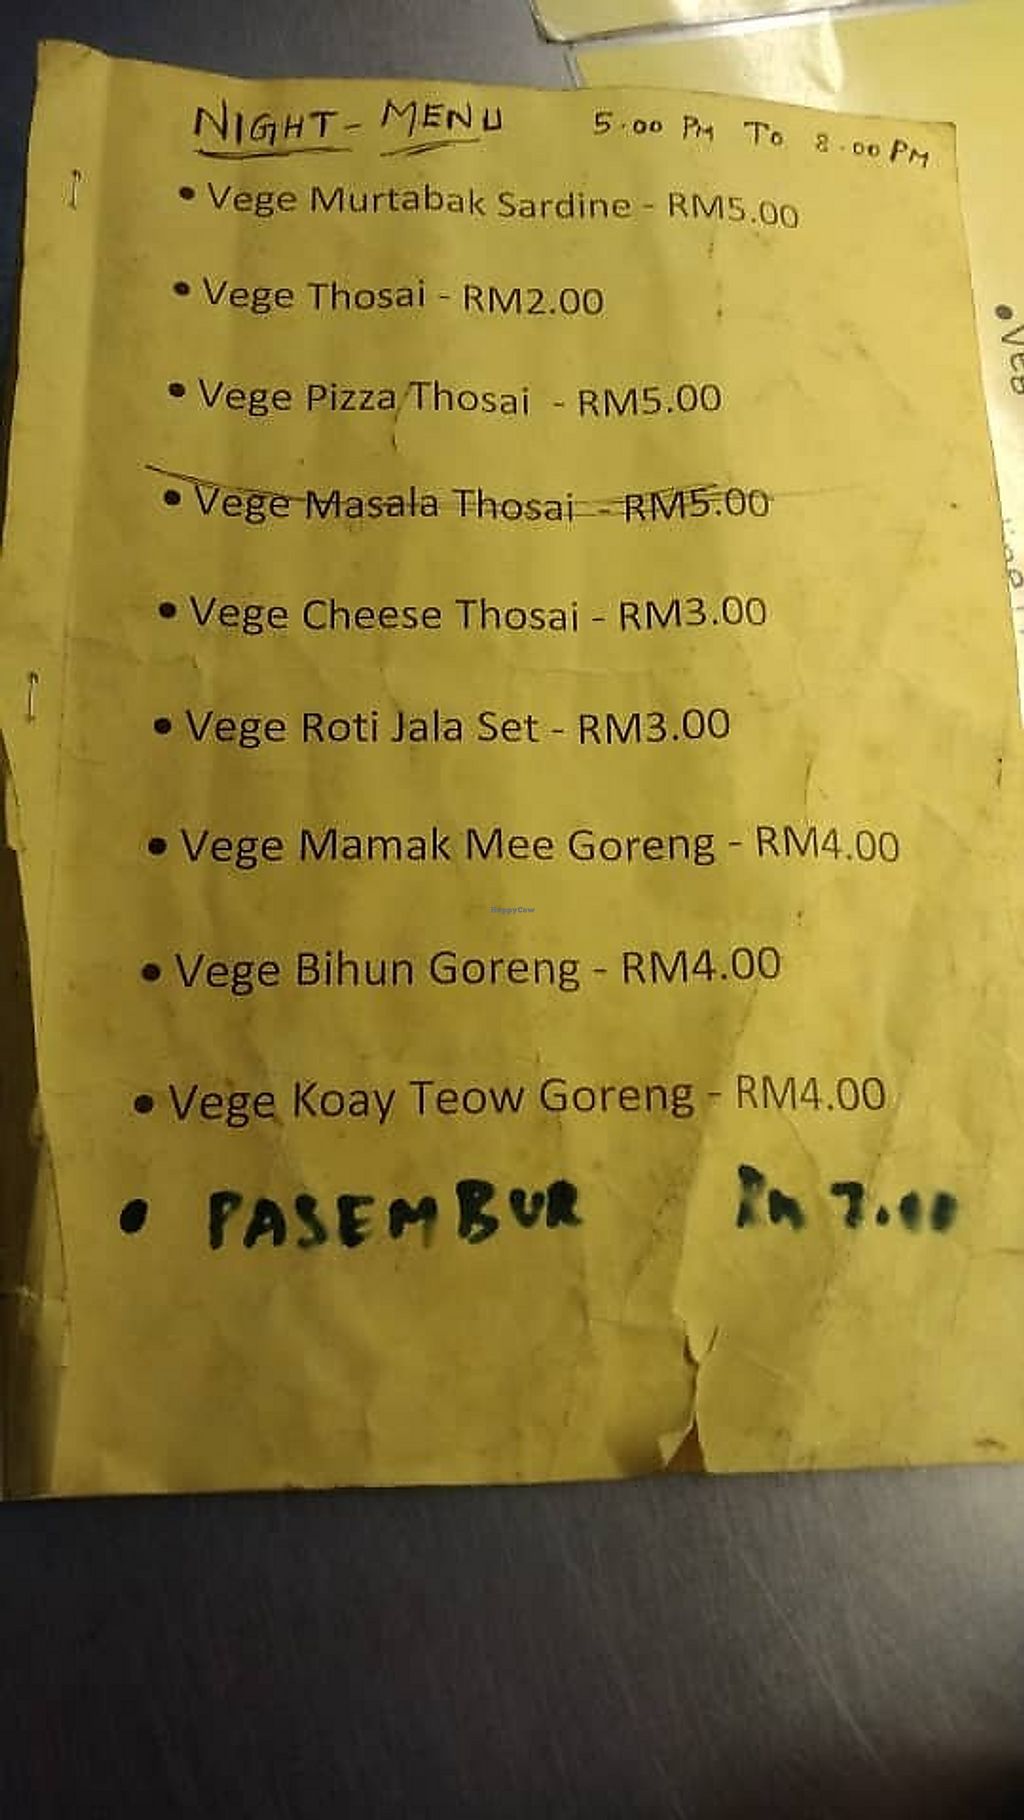 NIGHT - MENU 5.00 PM TO 8.00 PM
• Vege Murtabak Sardine - RM5.00
• Vege Thosai - RM2.00
• Vege Pizza Thosai - RM5.00
• Vege Masala Thosai - RM5.00
• Vege Cheese Thosai - RM3.00
• Vege Roti Jala Set - RM3.00
• Vege Mamak Mee Goreng - RM4.00
HappyCow
• Vege Bihun Goreng - RM4.00
• Vege Koay Teow Goreng - RM4.00
• PASEMBUR Rm 7.00